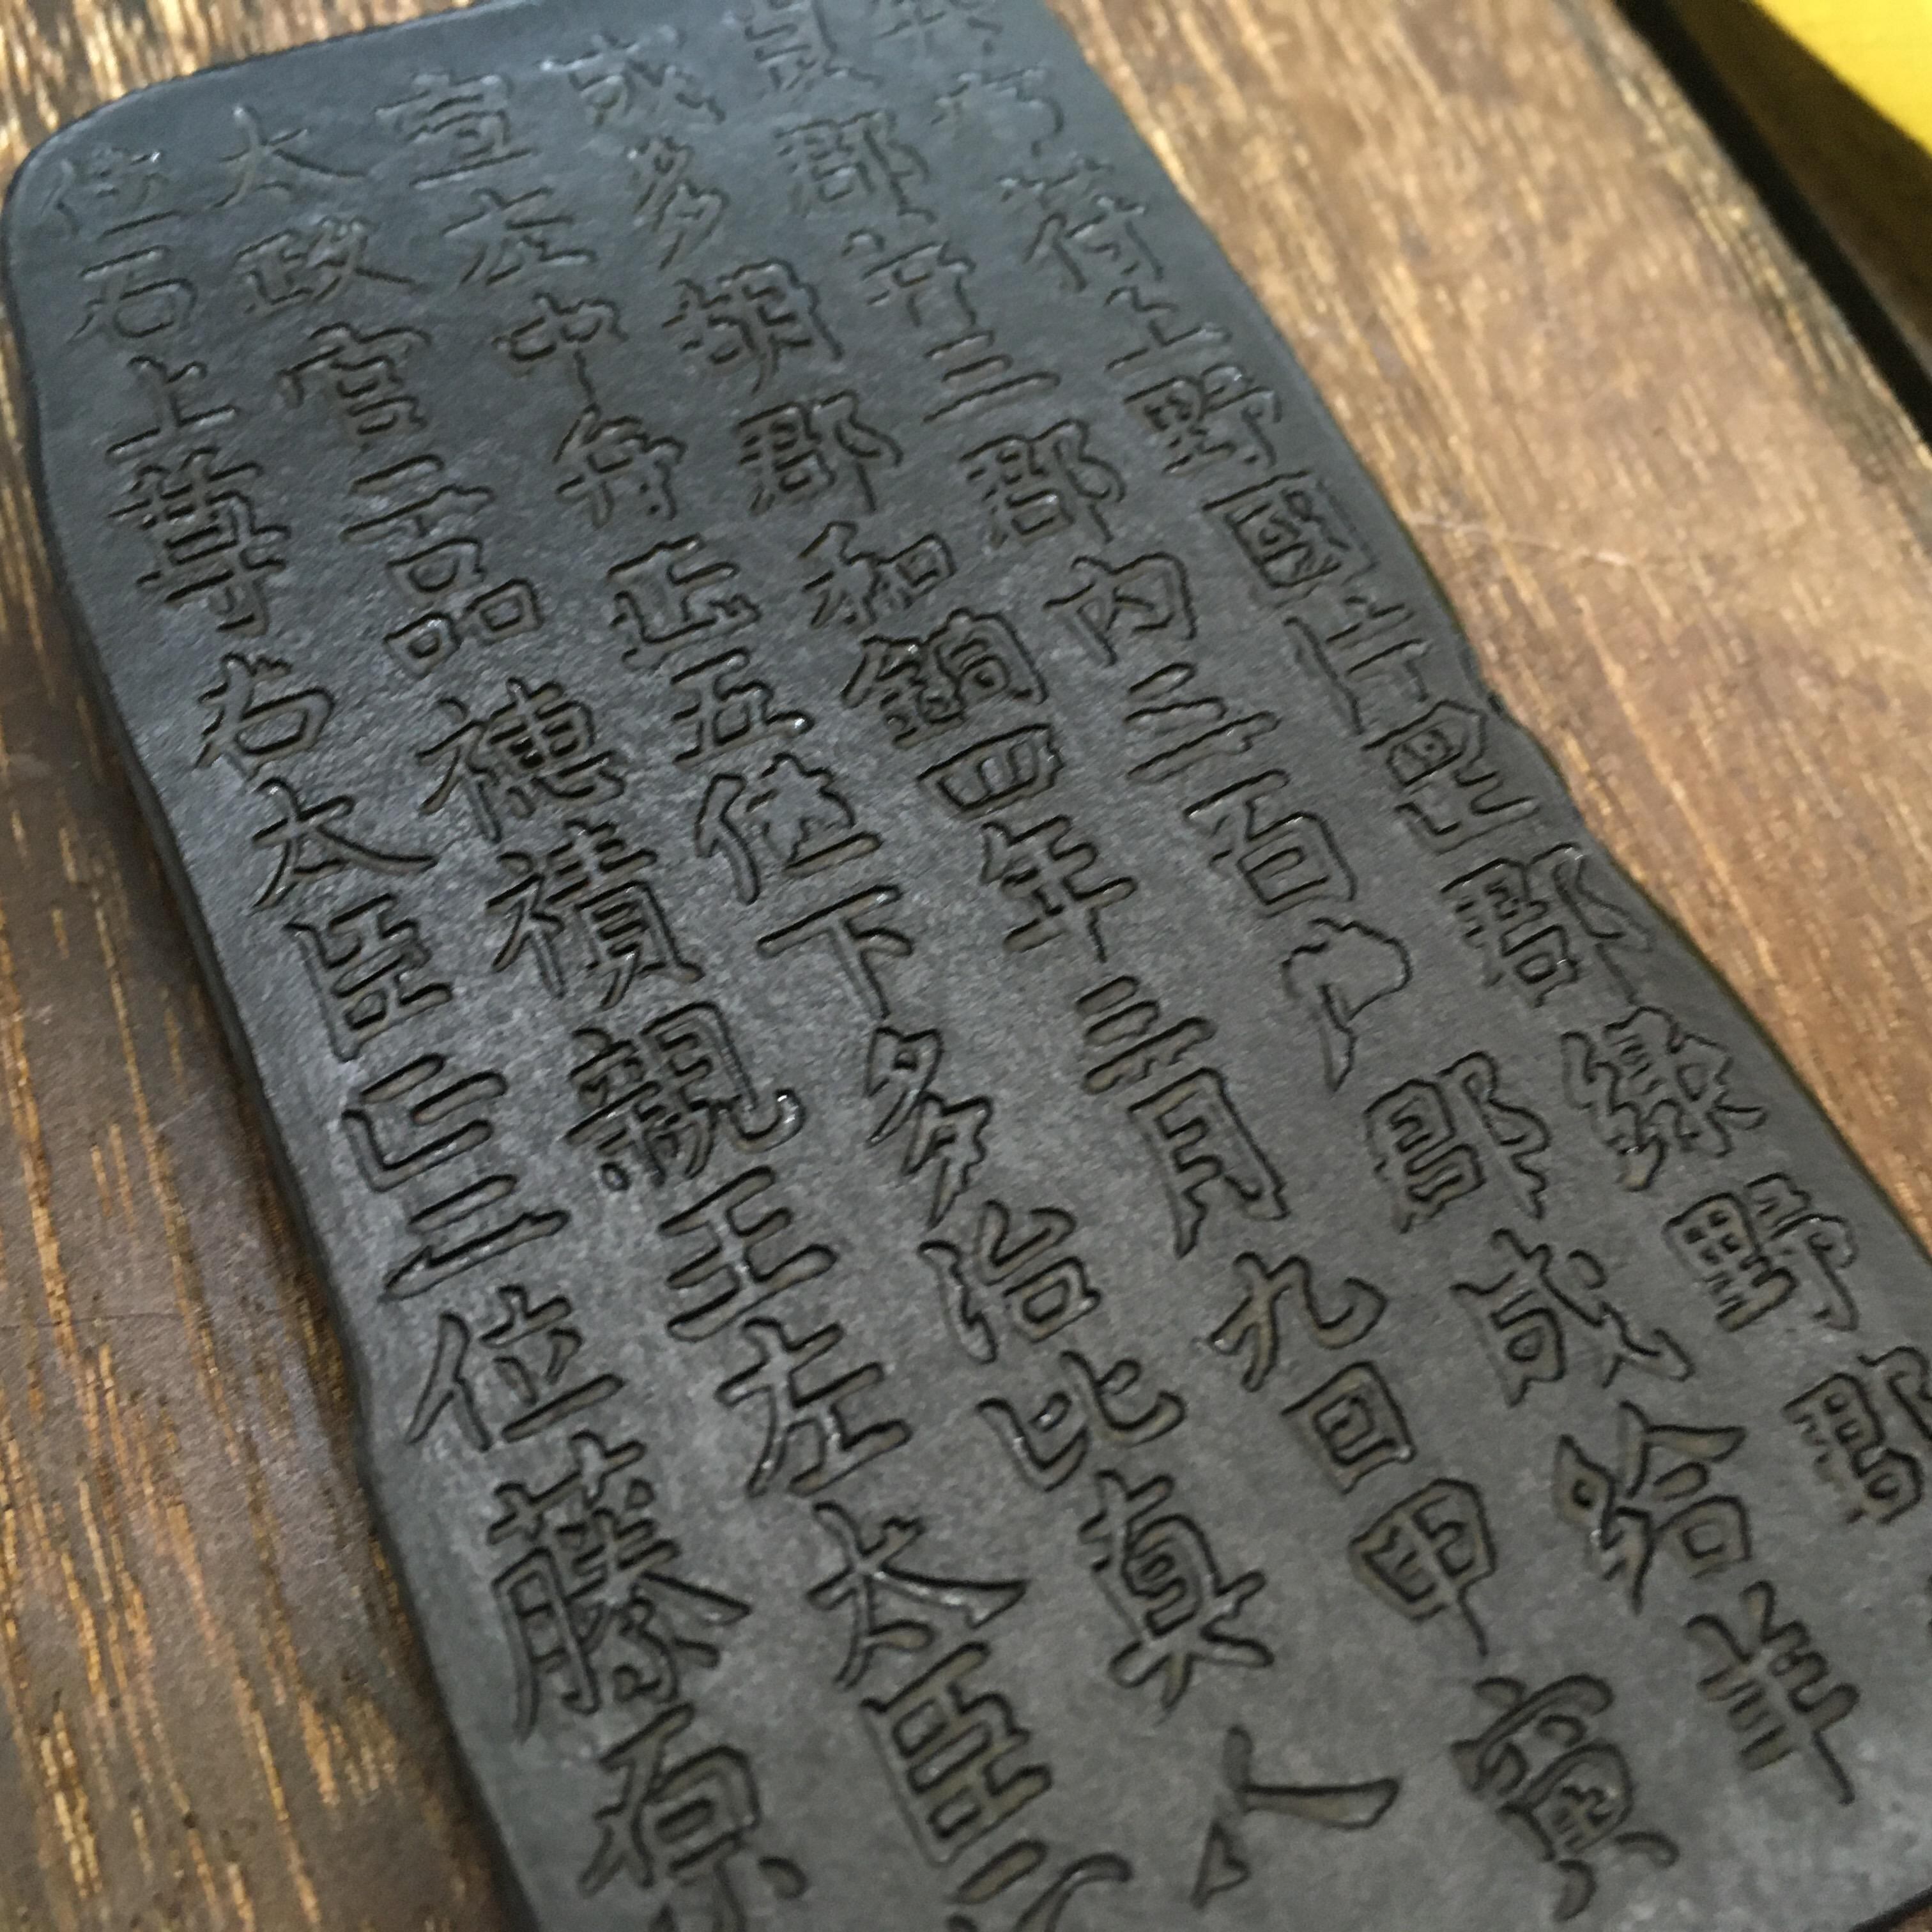 官符上野國片罡郡緑野郡
良郡并三郡内三百戸郡成給羊
成多胡郡和銅四年三月九日甲寅
宣左中弁正五位下多治比真人
太政官二品穂積親王左太臣正
位石上尊右太臣正三位藤原